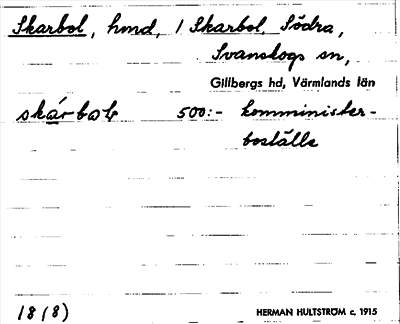 Skarbol, hmd, / Skarbol, Södra,
Svanskogs sn,
Gillbergs hd, Värmlands län
skárbob 500:- komminister-
boställe
18 (8)
HERMAN HULTSTRÖM c. 1915